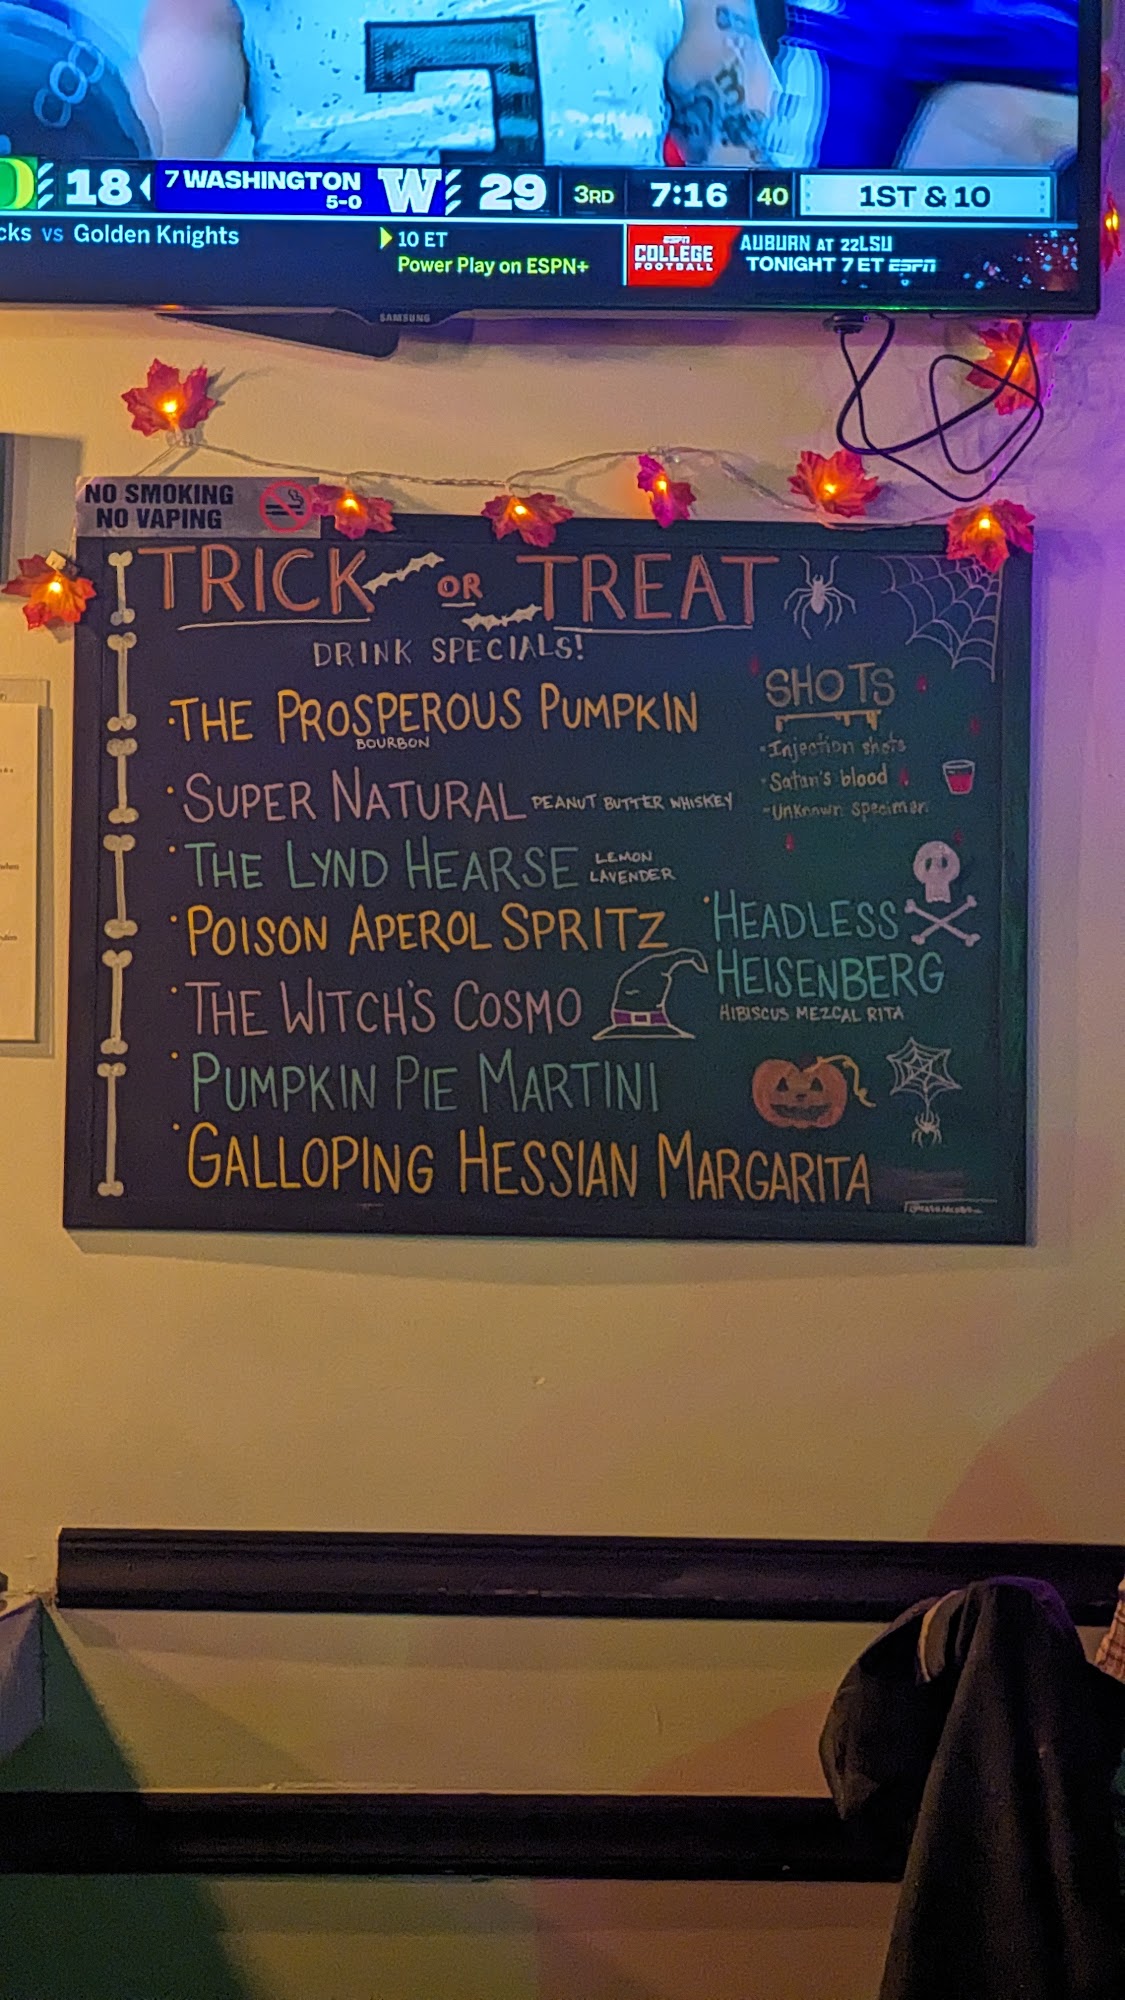 18 7 WASHINGTON 5-0 W 29 3RD 7:16 40 1ST & 10
cks vs Golden Knights
10 ET
Power Play on ESPN+
ESPN COLLEGE FOOTBALL
AUBURN AT 22LSU
TONIGHT 7 ET ESPN
SAMSUNG
NO SMOKING
NO VAPING
TRICK OR TREAT
DRINK SPECIALS!
·THE PROSPEROUS PUMPKIN
BOURBON
·SUPER NATURAL PEANUT BUTTER WHISKEY
·THE LYND HEARSE LEMON LAVENDER
·POISON APEROL SPRITZ
·THE WITCH'S COSMO
·PUMPKIN PIE MARTINI
·GALLOPING HESSIAN MARGARITA
SHOTS
-Injection shots
-Satan's blood
-Unknown specimen
·HEADLESS
HEISENBERG
HIBISCUS MEZCAL RITA